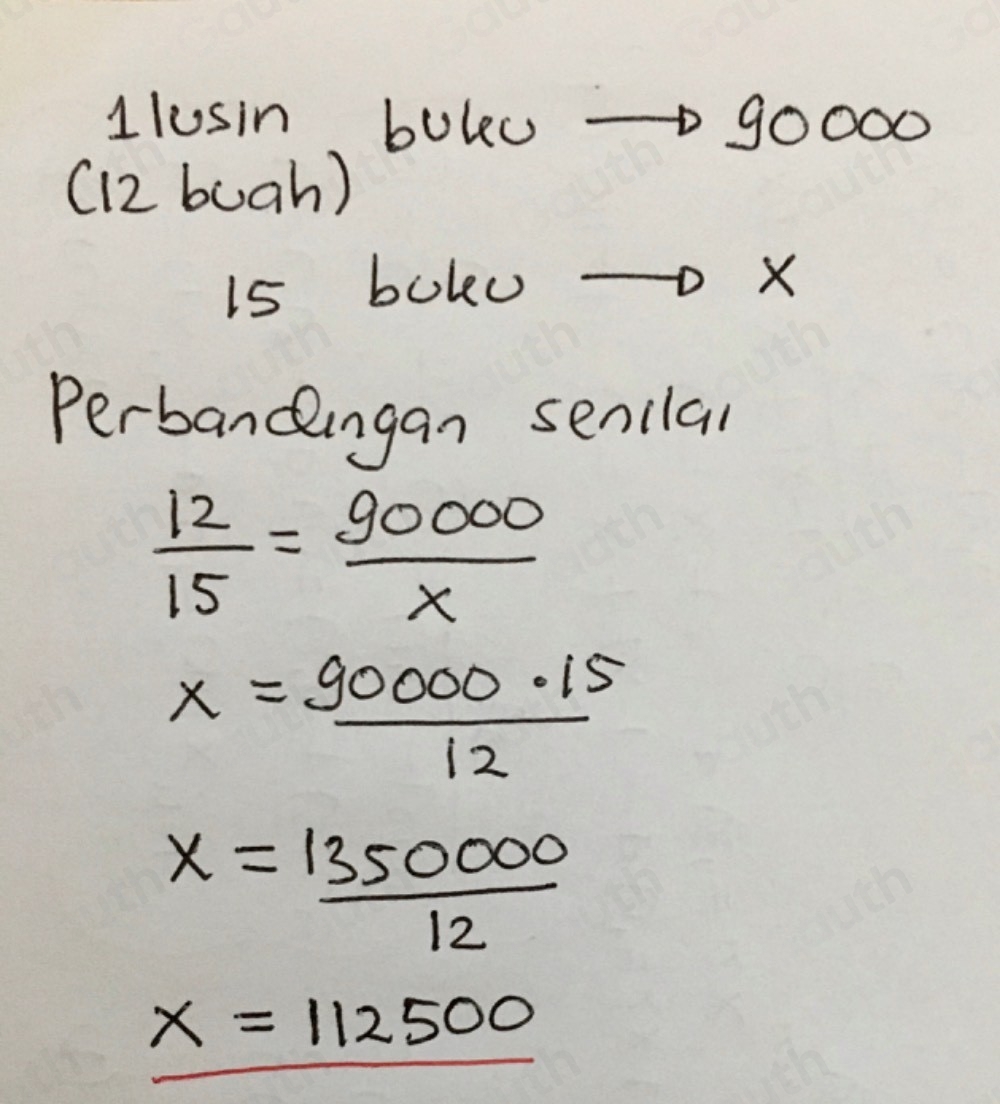 1 lusin buku → 90000
(12 buah)
15 buku → x
Perbandingan senilai
12/15 = 90000/x
x = 90000 · 15/12
x = 1350000/12
x = 112500